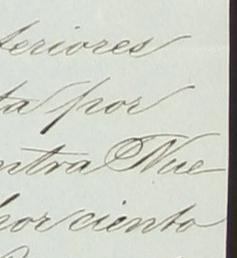 teriores
ta por
ntra Nue
por ciento